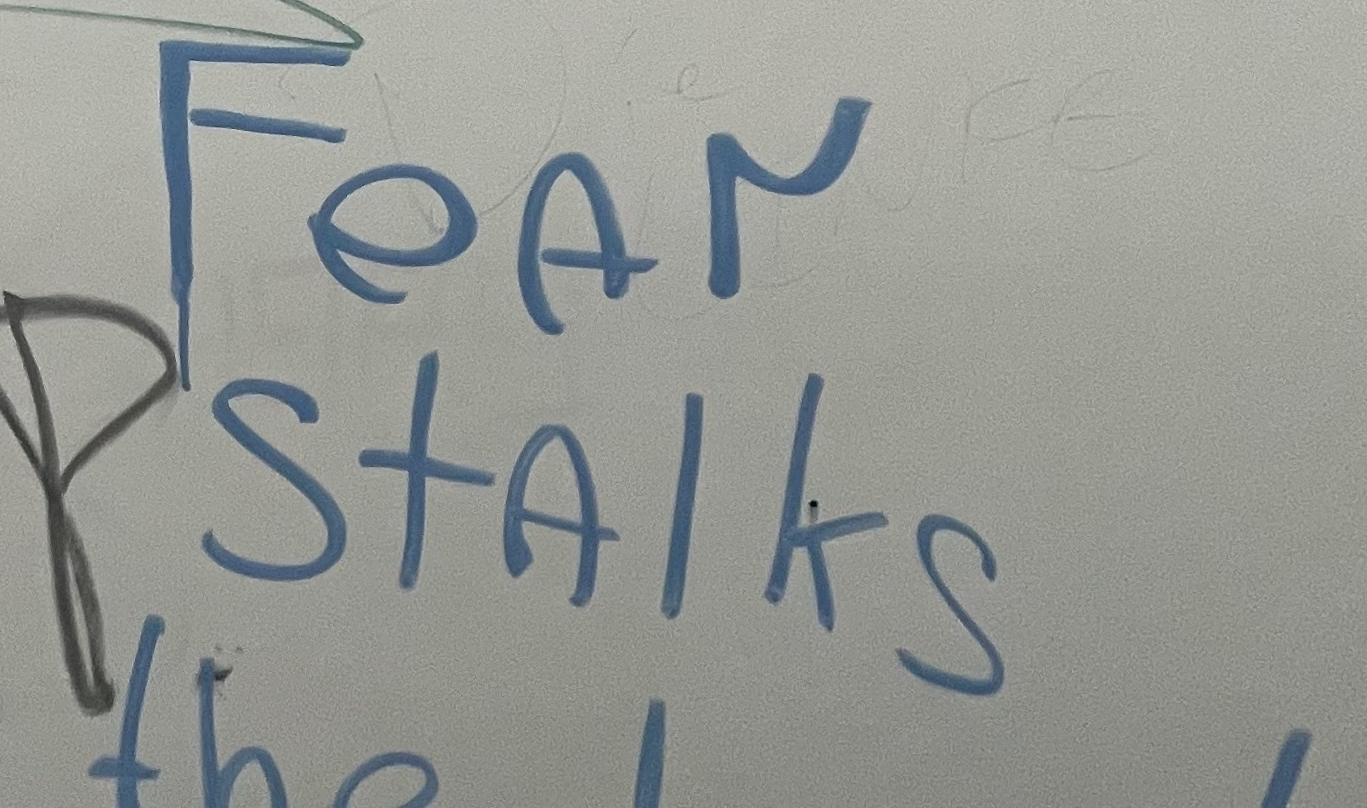 FeAr
StAlks
the